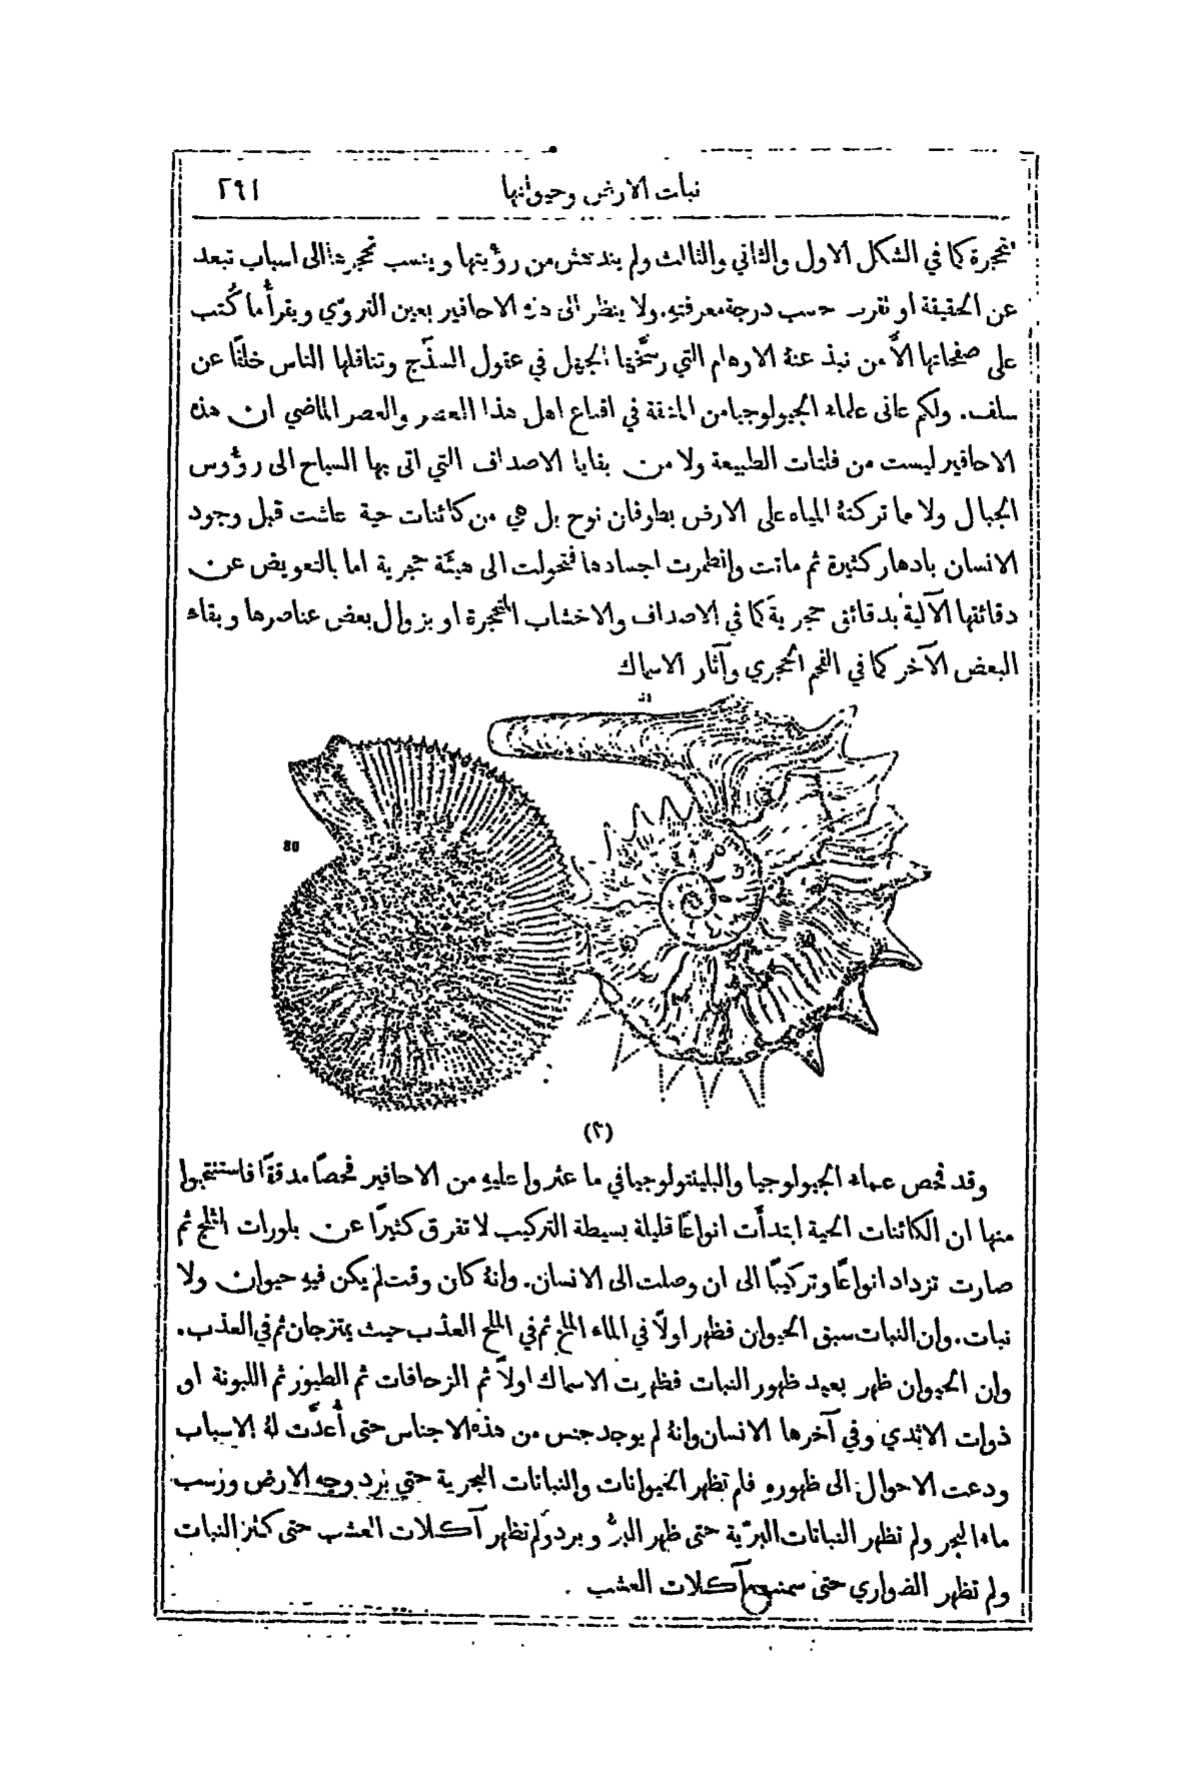 نبات الارض وحيواتها ٢٩١
متحجرة كما في الشكل الاول والثاني والثالث ولم يندهش من رؤيتها وينسب تحجرها الى اسباب تبعد
عن الحقيقة او تقرب حسب درجة معرفتهِ. ولا ينظر الى هذه الاحافير بعين التروّي ويقرأُ ما كُتب
على صفحاتها الاَّ من نبذ عنهُ الاوهام التي رسَّخها الجهل في عقول السذَّج وتناقلها الناس خلفًا عن
سلف. ولكم عانى علماء الجيولوجيا من المشقة في اقناع اهل هذا العصر والعصر الماضي ان هذه
الاحافير ليست من فلتات الطبيعة ولا من بقايا الاصداف التي اتى بها السياح الى رؤوس
الجبال ولا مما تركتهُ المياه على الارض بطوفان نوح بل هي من كائنات حية عاشت قبل وجود
الانسان بادهار كثيرة ثم ماتت وانطمرت اجسادها فتحولت الى هيئة حجرية اما بالتعويض عن
دقائقها الآلية بدقائق حجرية كما في الاصداف والاخشاب المتحجرة او بزوال بعض عناصرها وبقاء
البعض الآخر كما في الفحم الحجري وآثار الاسماك
80
(٢)
وقد فحص علماء الجيولوجيا والبلينتولوجيا في ما عثروا عليهِ من الاحافير فحصًا مدققًا فاستنتجوا
منها ان الكائنات الحية ابتدأَت انواعًا قليلة بسيطة التركيب لا تفرق كثيرًا عن بلورات الثلج ثم
صارت تزداد انواعًا وتركيبًا الى ان وصلت الى الانسان. وانهُ كان وقت لم يكن فيهِ حيوان ولا
نبات. وان النبات سبق الحيوان فظهر اولاً في الماء الملح ثم في الملح العذب حيث يمتزجان ثم في العذب.
وان الحيوان ظهر بعيد ظهور النبات فظهرت الاسماك اولاً ثم الزحافات ثم الطيور ثم اللبونة او
ذوات الاثدي وفي آخرها الانسان وانهُ لم يوجد جنس من هذه الاجناس حتى أُعدَّت لهُ الاسباب
ودعت الاحوال الى ظهورهِ فلم تظهر الحيوانات والنباتات البحرية حتى برد وجه الارض ورسب
ماء البحر ولم تظهر النباتات البرّية حتى ظهر البرُّ وبرد ولم تظهر آكلات العشب حتى كثر النبات
ولم تظهر الضواري حتى سمنت آكلات العشب .